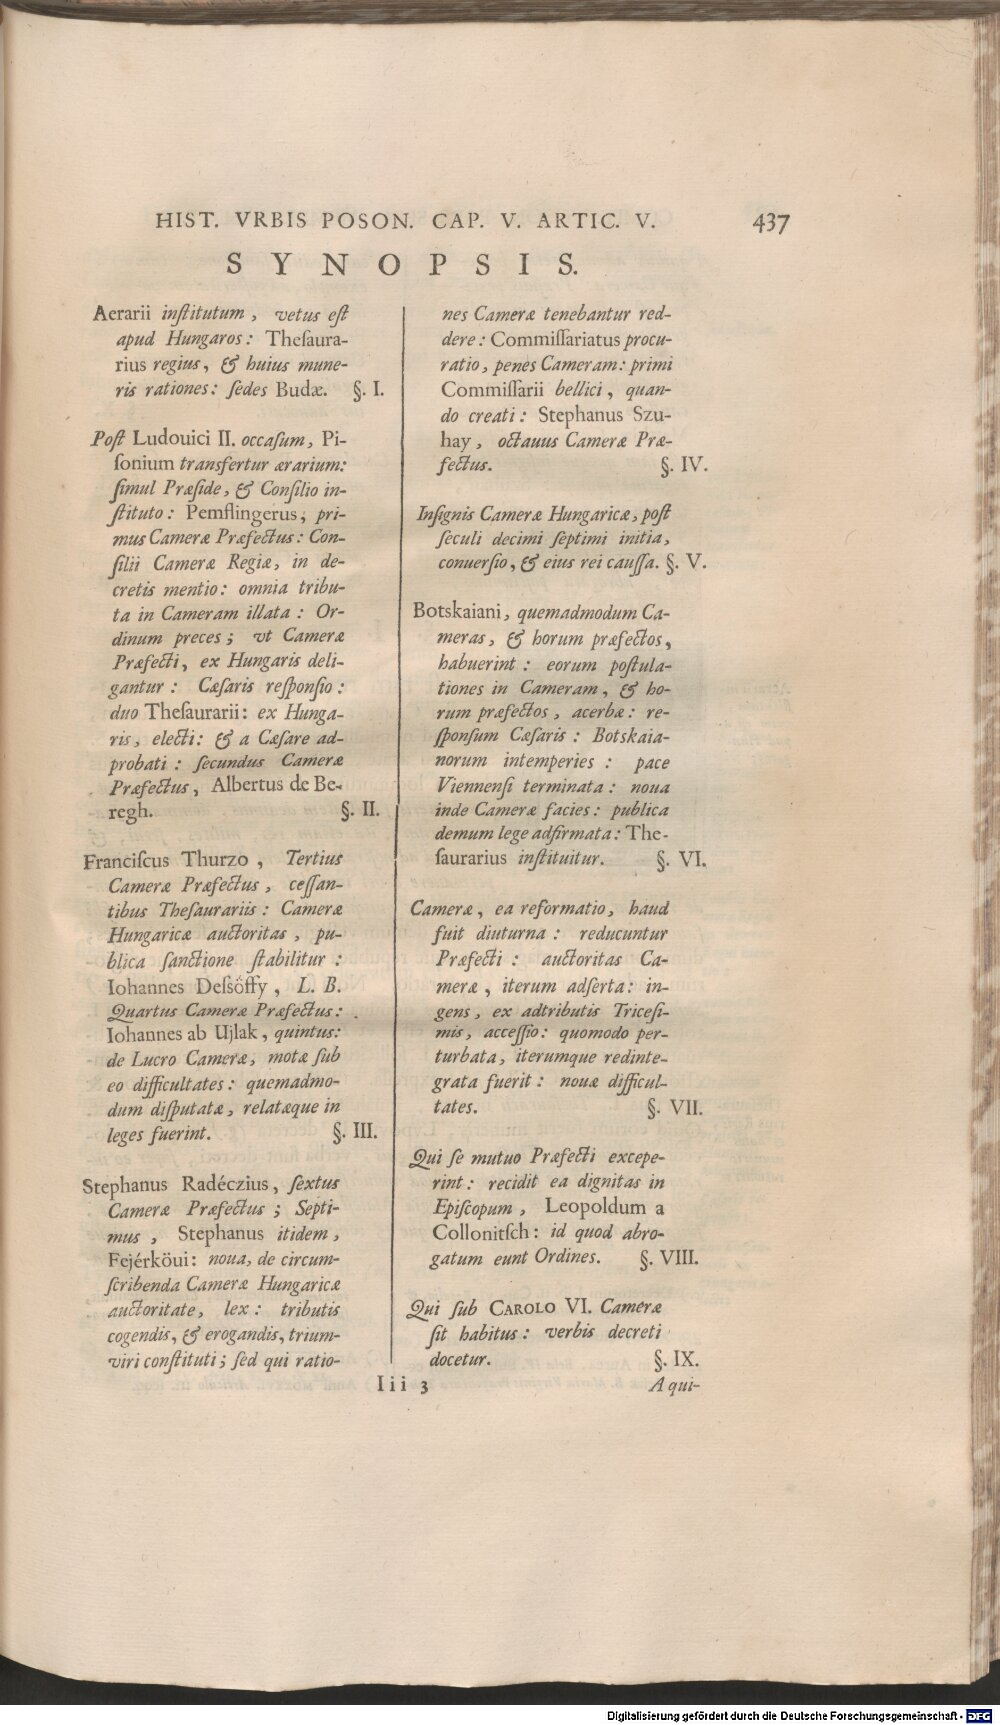 HIST. VRBIS POSON. CAP. V. ARTIC. V. 437
SYNOPSIS.
Aerarii inſtitutum, vetus eſt
apud Hungaros: Theſaura-
rius regius, & huius mune-
ris rationes: ſedes Budæ. §. I.
Poſt Ludouici II. occaſum, Pi-
ſonium transfertur ærarium:
ſimul Præſide, & Conſilio in-
ſtituto: Pemflingerus, pri-
mus Cameræ Præfectus: Con-
ſilii Cameræ Regiæ, in de-
cretis mentio: omnia tribu-
ta in Cameram illata: Or-
dinum preces; vt Cameræ
Præfecti, ex Hungaris deli-
gantur: Cæſaris reſponſio:
duo Theſaurarii: ex Hunga-
ris, electi: & a Cæſare ad-
probati: ſecundus Cameræ
Præfectus, Albertus de Be-
regh. §. II.
Franciſcus Thurzo, Tertius
Cameræ Præfectus, ceſſan-
tibus Theſaurariis: Cameræ
Hungaricæ auctoritas, pu-
blica ſanctione ſtabilitur:
Iohannes Deſsöffy, L. B.
Quartus Cameræ Præfectus:
Iohannes ab Ujlak, quintus:
de Lucro Cameræ, motæ ſub
eo difficultates: quemadmo-
dum diſputatæ, relatæque in
leges fuerint. §. III.
Stephanus Radéczius, ſextus
Cameræ Præfectus; Septi-
mus, Stephanus itidem,
Fejérköui: noua, de circum-
ſcribenda Cameræ Hungaricæ
auctoritate, lex: tributis
cogendis, & erogandis, trium-
viri conſtituti; ſed qui ratio-
nes Cameræ tenebantur red-
dere: Commiſſariatus procu-
ratio, penes Cameram: primi
Commiſſarii bellici, quan-
do creati: Stephanus Szu-
hay, octauus Cameræ Præ-
fectus. §. IV.
Inſignis Cameræ Hungaricæ, poſt
ſeculi decimi ſeptimi initia,
conuerſio, & eius rei cauſſa. §. V.
Botskaiani, quemadmodum Ca-
meras, & horum præfectos,
habuerint: eorum poſtula-
tiones in Cameram, & ho-
rum præfectos, acerbæ: re-
ſponſum Cæſaris: Botskaia-
norum intemperies: pace
Viennenſi terminata: noua
inde Cameræ facies: publica
demum lege adfirmata: The-
ſaurarius inſtituitur. §. VI.
Cameræ, ea reformatio, haud
fuit diuturna: reducuntur
Præfecti: auctoritas Ca-
meræ, iterum adſerta: in-
gens, ex adtributis Triceſi-
mis, acceſſio: quomodo per-
turbata, iterumque redinte-
grata fuerit: nouæ difficul-
tates. §. VII.
Qui ſe mutuo Præfecti excepe-
rint: recidit ea dignitas in
Epiſcopum, Leopoldum a
Collonitſch: id quod abro-
gatum eunt Ordines. §. VIII.
Qui ſub CAROLO VI. Cameræ
ſit habitus: verbis decreti
docetur. §. IX.
Iii 3 A qui-
Digitalisierung gefördert durch die Deutsche Forschungsgemeinschaft - DFG